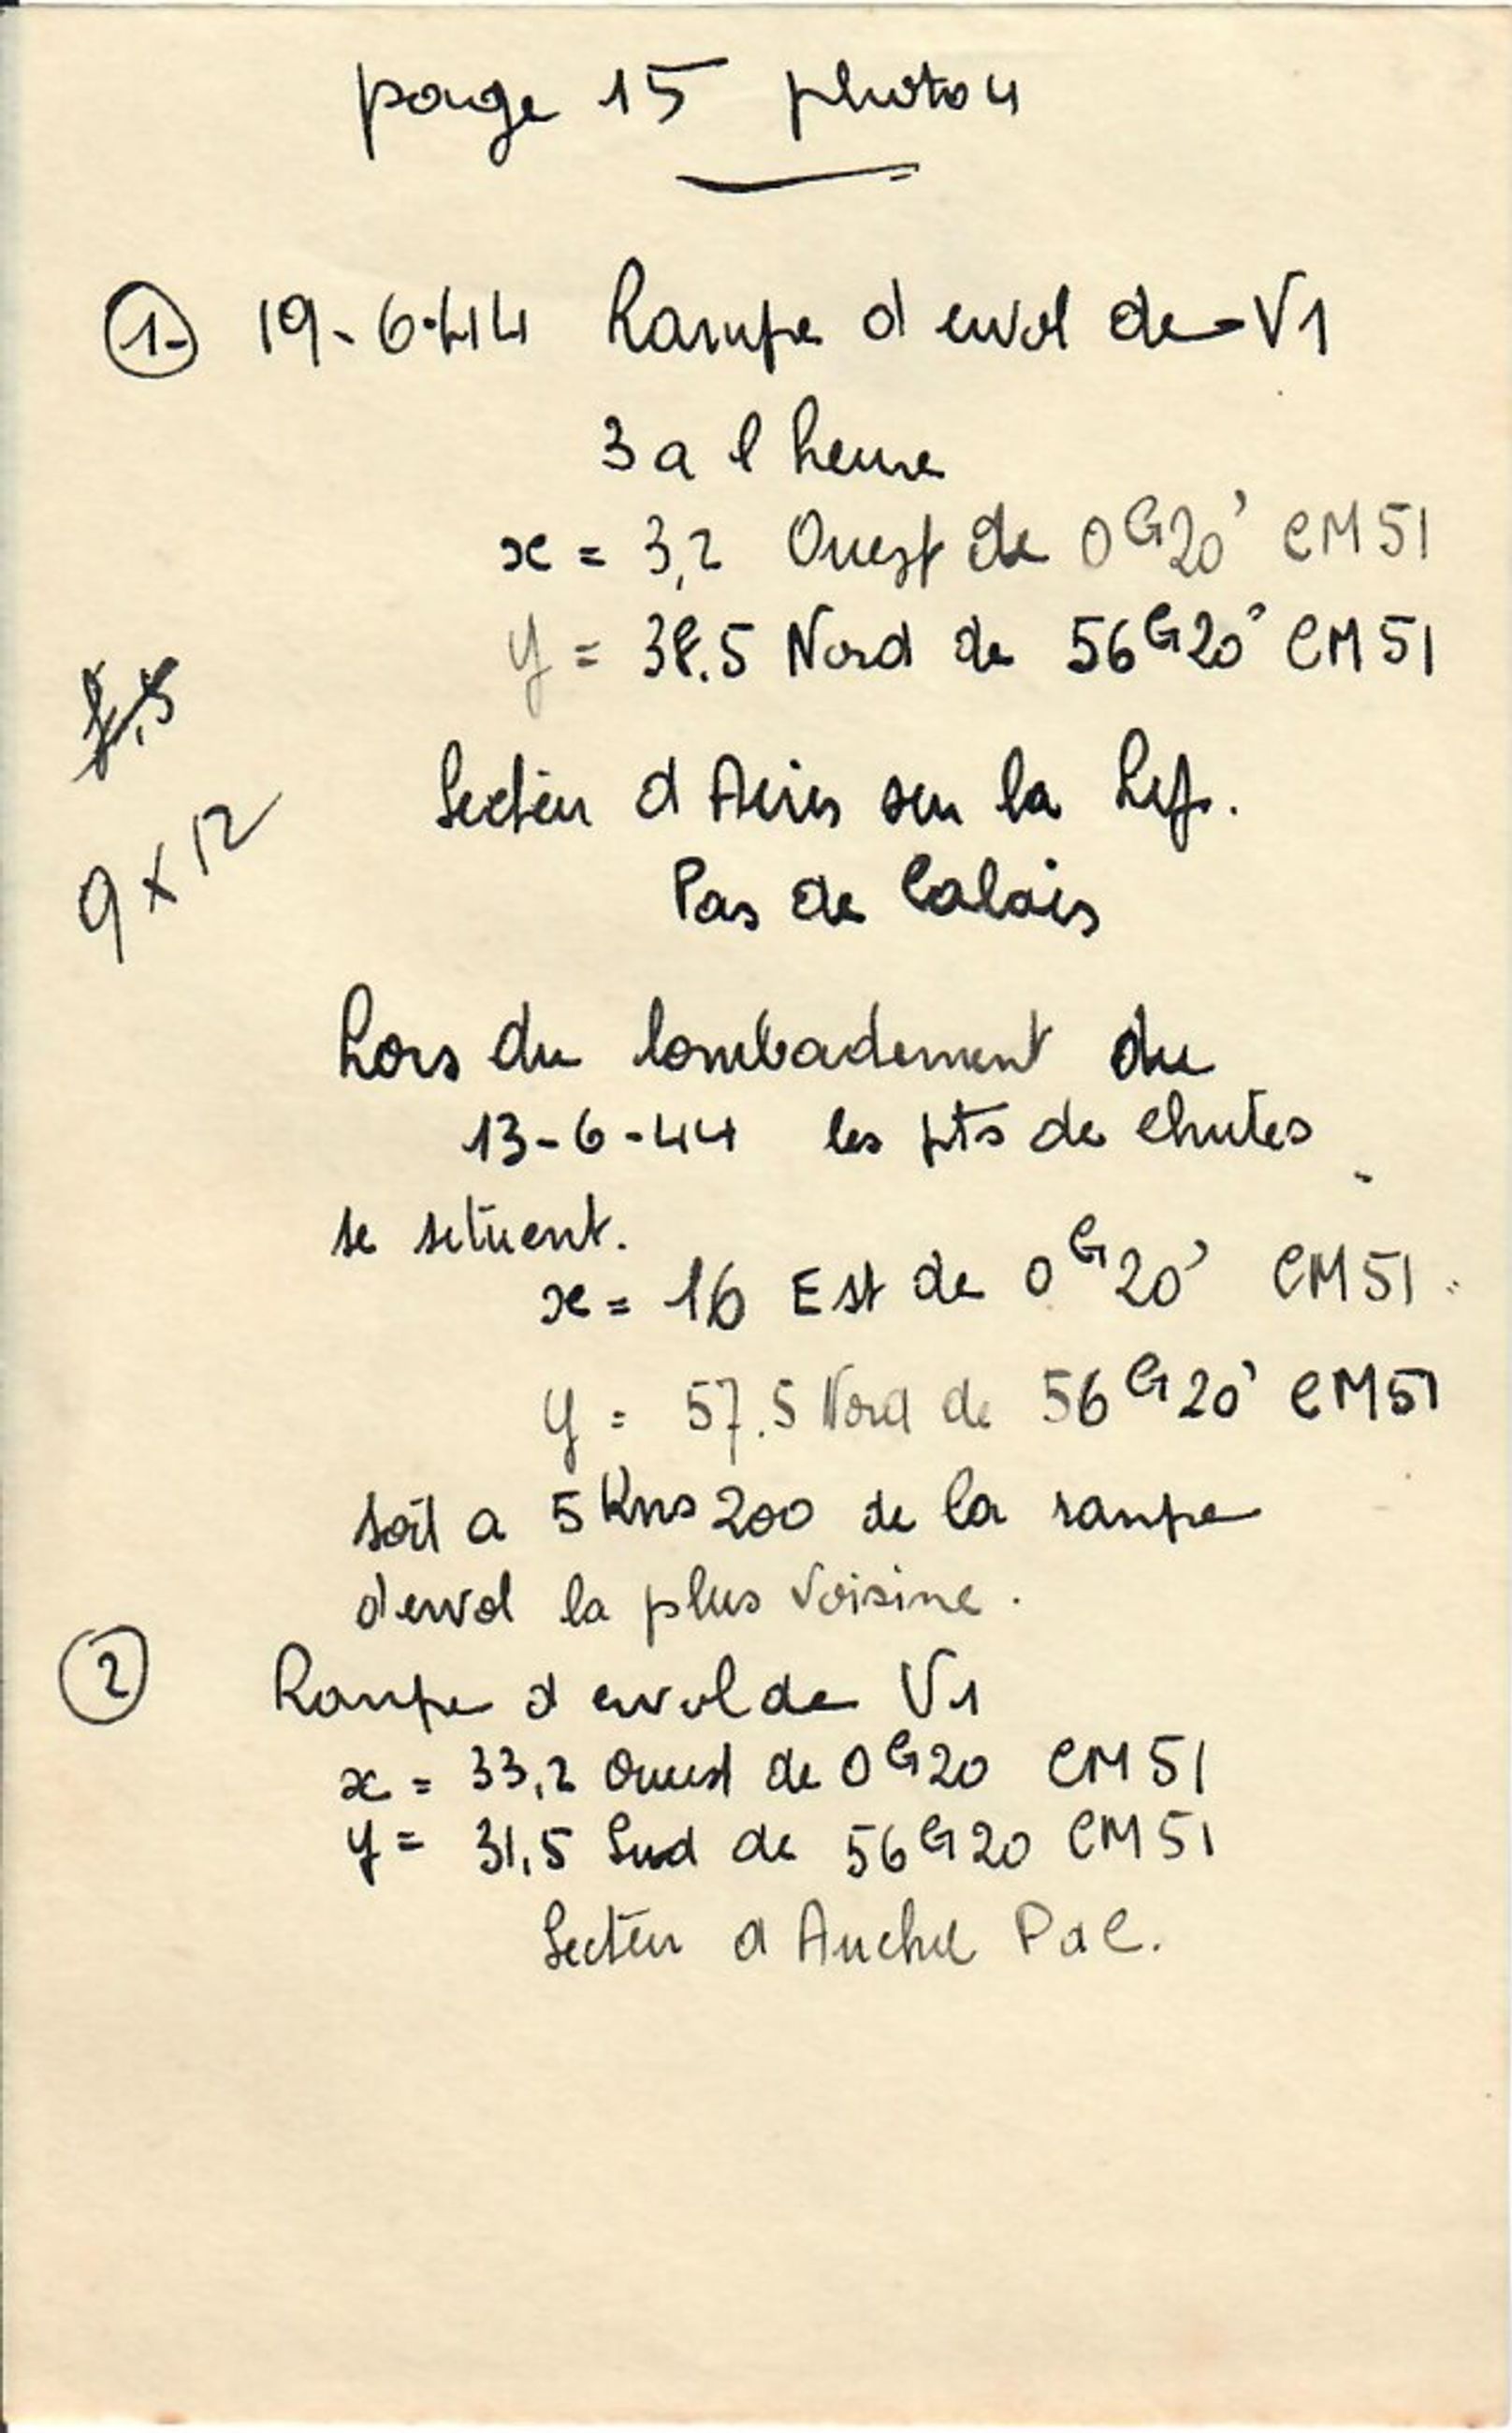 page 15 photo 4
1. 19-6-44 Rampe d envol de V1
3 a l heure
x = 3,2 Ouest de 0G20' CM51
y = 38.5 Nord de 56G20' CM51
9 x 12
Secteur d Aires sur la Lys.
Pas de Calais
Lors du bombadement du
13-6-44 les pts de chutes
se situent.
x = 16 Est de 0G20' CM51
y = 57.5 Nord de 56G20' CM51
soit a 5 Kms 200 de la rampe
d'envol la plus voisine.
2 Rampe d envol de V1
x = 33,2 Ouest de 0G20 CM51
y = 31,5 Sud de 56G20 CM51
Secteur d Auchel PdC.